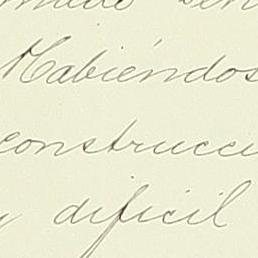 Habiéndos
construcci
y dificil